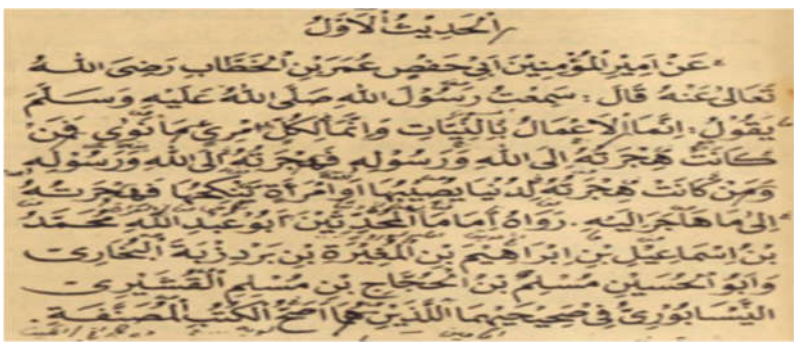 الحَدِيْثُ الْاَوَّلُ
عَنْ اَمِيْرِ الْمُؤْمِنِيْنَ اَبِيْ حَفْصٍ عُمَرَ بْنِ الْخَطَّابِ رَضِيَ اللهُ
تَعَالىٰ عَنْهُ قَالَ : سَمِعْتُ رَسُوْلَ اللهِ صَلَّى اللهُ عَلَيْهِ وَسَلَّمَ
يَقُوْلُ : اِنَّمَا الْاَعْمَالُ بِالنِّيَّاتِ وَاِنَّمَا لِكُلِّ امْرِئٍ مَا نَوٰى فَمَنْ
كَانَتْ هِجْرَتُهُ اِلَى اللهِ وَرَسُوْلِهِ فَهِجْرَتُهُ اِلَى اللهِ وَرَسُوْلِهِ
وَمَنْ كَانَتْ هِجْرَتُهُ لِدُنْيَا يُصِيْبُهَا اَوِ امْرَأَةٍ يَنْكِحُهَا فَهِجْرَتُهُ
اِلىٰ مَا هَاجَرَ اِلَيْهِ . رَوَاهُ اِمَامَا الْمُحَدِّثِيْنَ اَبُوْ عَبْدِ اللهِ مُحَمَّدُ
بْنُ اِسْمَاعِيْلَ بْنِ اِبْرَاهِيْمَ بْنِ الْمُغِيْرَةِ بْنِ بَرْدِزْبَةَ الْبُخَارِى
وَاَبُو الْحُسَيْنِ مُسْلِمُ بْنُ الْحَجَّاجِ بْنِ مُسْلِمِ الْقُشَيْرِى
النَّيْسَابُوْرِىُّ فِىْ صَحِيْحَيْهِمَا اللَّذَيْنِ هُمَا اَصَحُّ الْكُتُبِ الْمُصَنَّفَةِ .